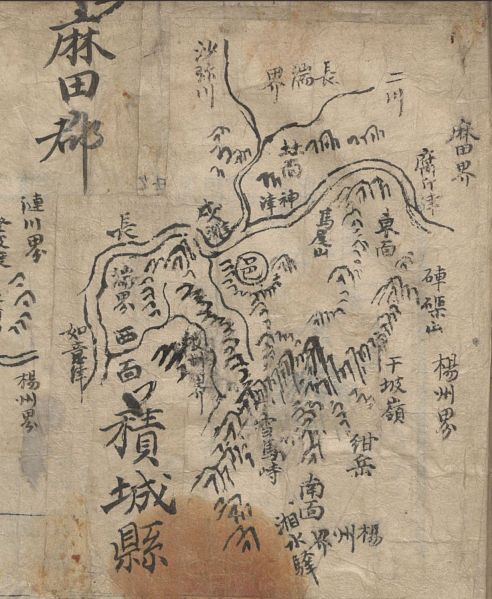 麻田郡
積城縣
沙弥川
長湍界
二川
麻田界
神津
東面
馬屋山
邑
長湍界
西面
漣川界
楊州界
楊州界
干坡嶺
紺岳
雪馬峙
南面
楊州界
湘水驛